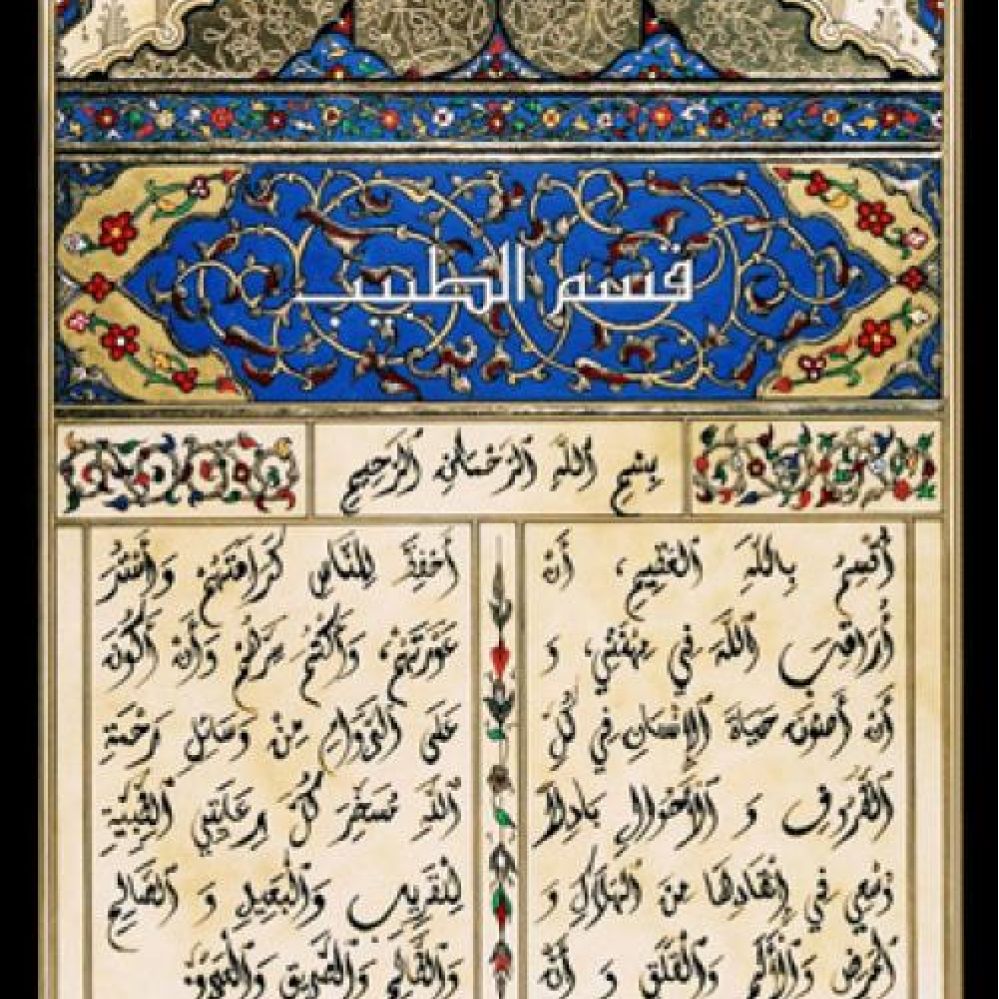 قسم الطبيب
بِسْمِ ٱللَّهِ ٱلرَّحْمَٰنِ ٱلرَّحِيمِ
أُقْسِمُ بِاللَّهِ العَظِيمِ، أَنْ
أُرَاقِبَ اللَّهَ فِي مِهْنَتِي، وَ
أَنْ أَصُونَ حَيَاةَ الإِنْسَانِ فِي كُلِّ
الظُّرُوفِ وَ الأَحْوَالِ بَاذِلًا
وُسْعِي فِي إِنْقَاذِهَا مِنَ الهَلَاكِ وَ
المَرَضِ وَالأَلَمِ وَالقَلَقِ وَ أَنْ
أَحْفَظَ لِلنَّاسِ كَرَامَتَهُمْ وَأَسْتُرَ
عَوْرَتَهُمْ، وَأَكْتُمَ سِرَّهُمْ وَأَنْ أَكُونَ
عَلَى الدَّوَامِ مِنْ وَسَائِلِ رَحْمَةِ
اللَّهِ مُسَخِّرًا كُلَّ رِعَايَتِي الطِّبِّيَّةِ
لِلْقَرِيبِ وَالْبَعِيدِ وَ الصَّالِحِ
وَالطَّالِحِ وَالصَّدِيقِ وَالْعَدُوِّ